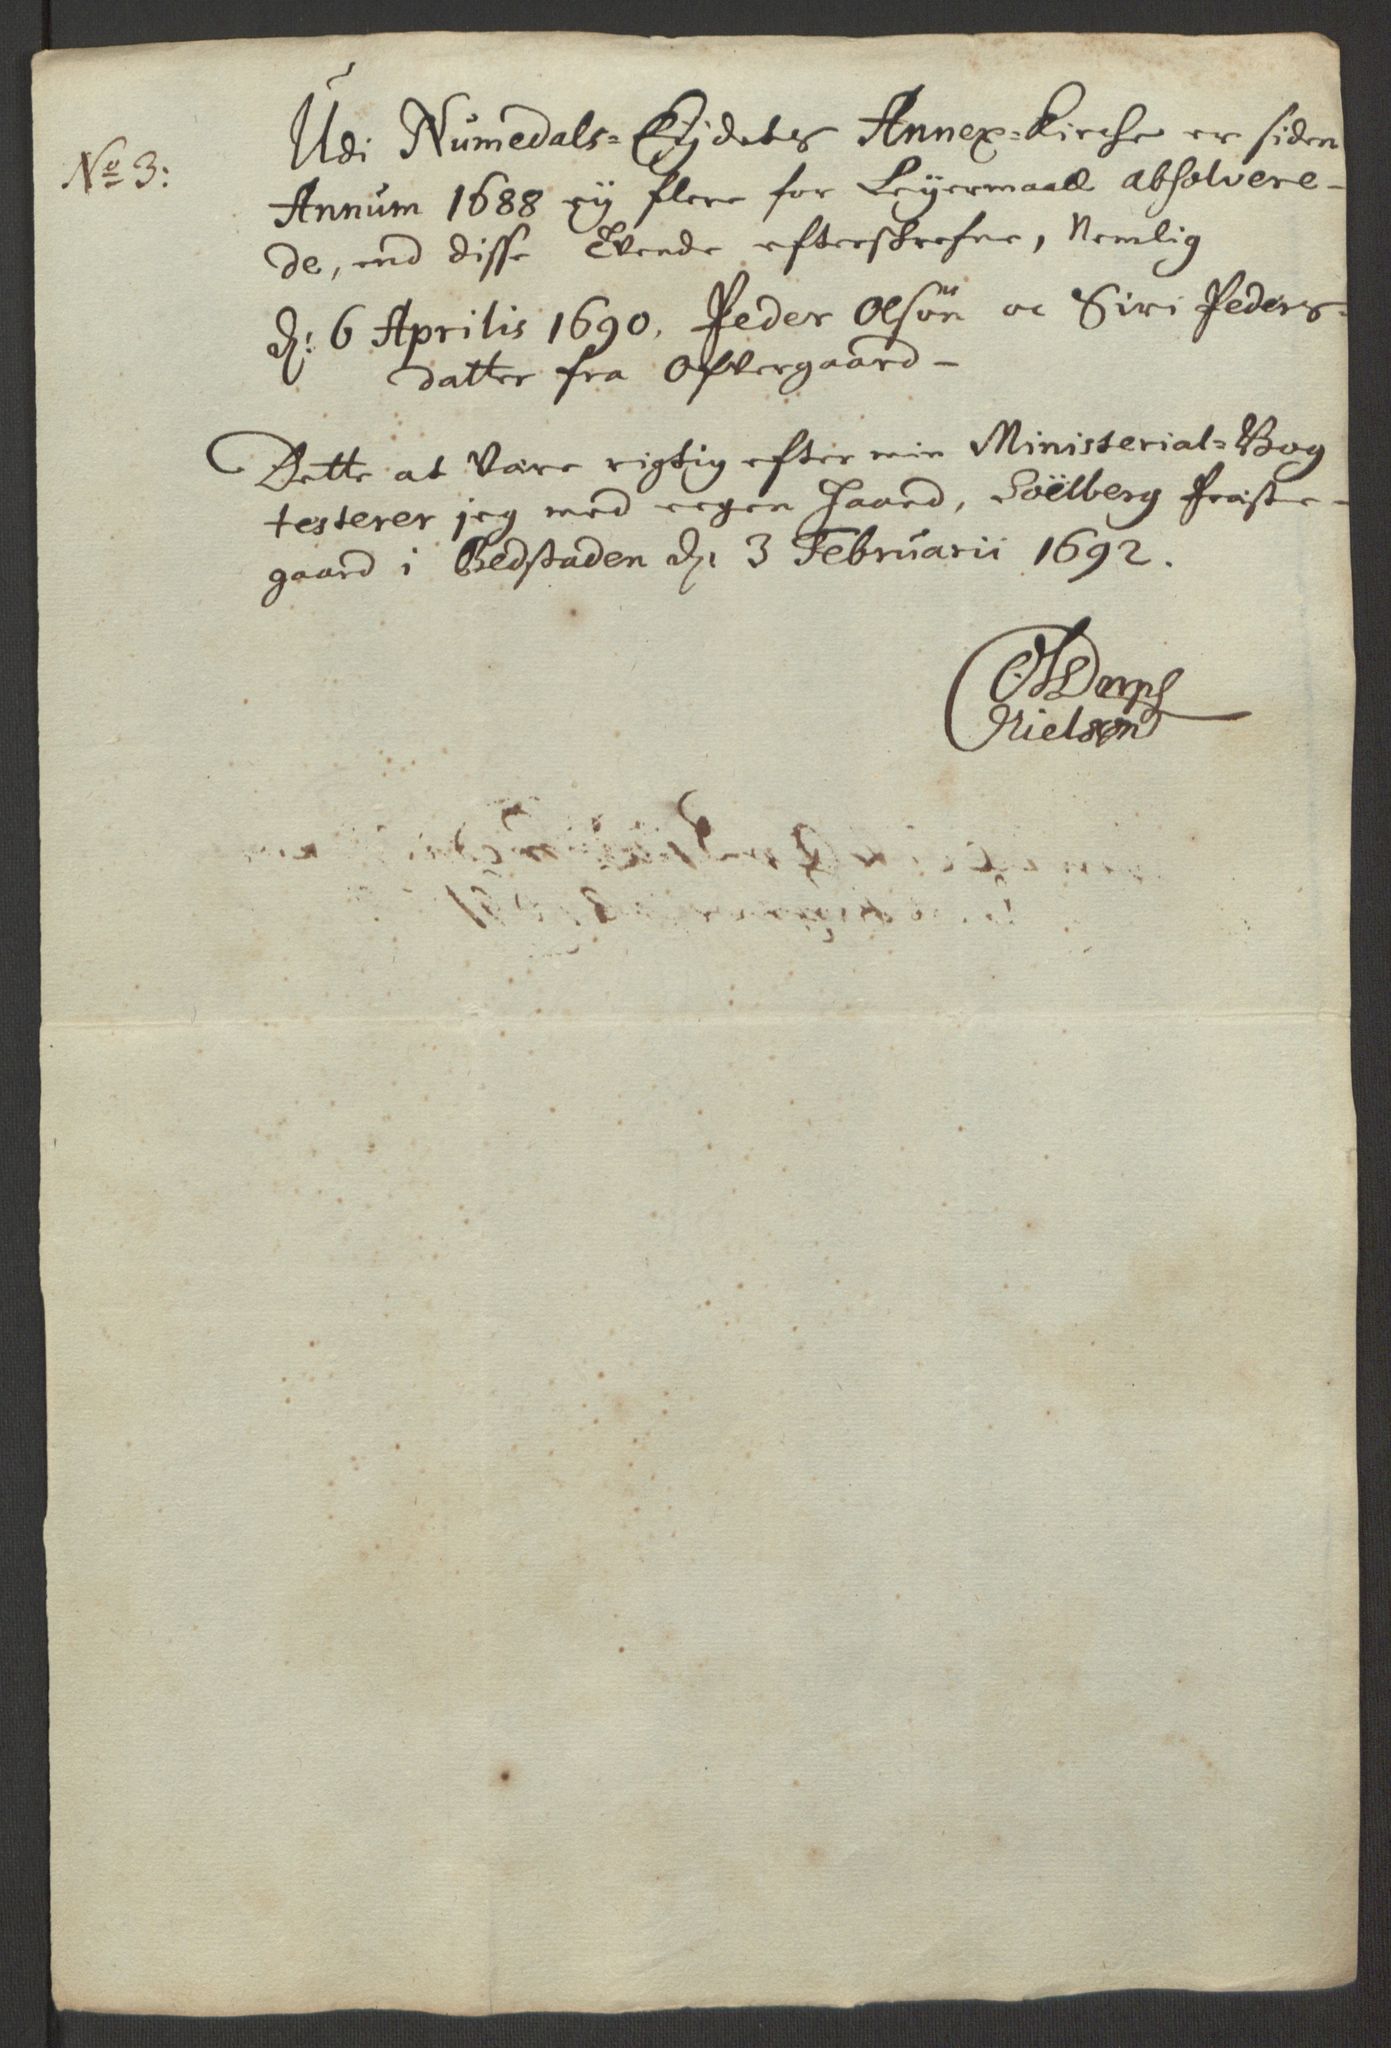 No 3:
Udi Numedals-Eÿdets Annex-Kirche er siden
Annum 1688 eÿ flere for Leÿermaall absolvere-
de, end disse tvende efterskrefne, Nemlig
d: 6 Aprilis 1690. Peder Olsön oc Siri Peders-
datter fra Ofvergaard-
Dette at være rigtig efter min Ministerial-Bog
testerer jeg med eegen Haand, Soëlberg Præste-
gaard i Bedstaden d: 3 Februarii 1692.
Nielsøn